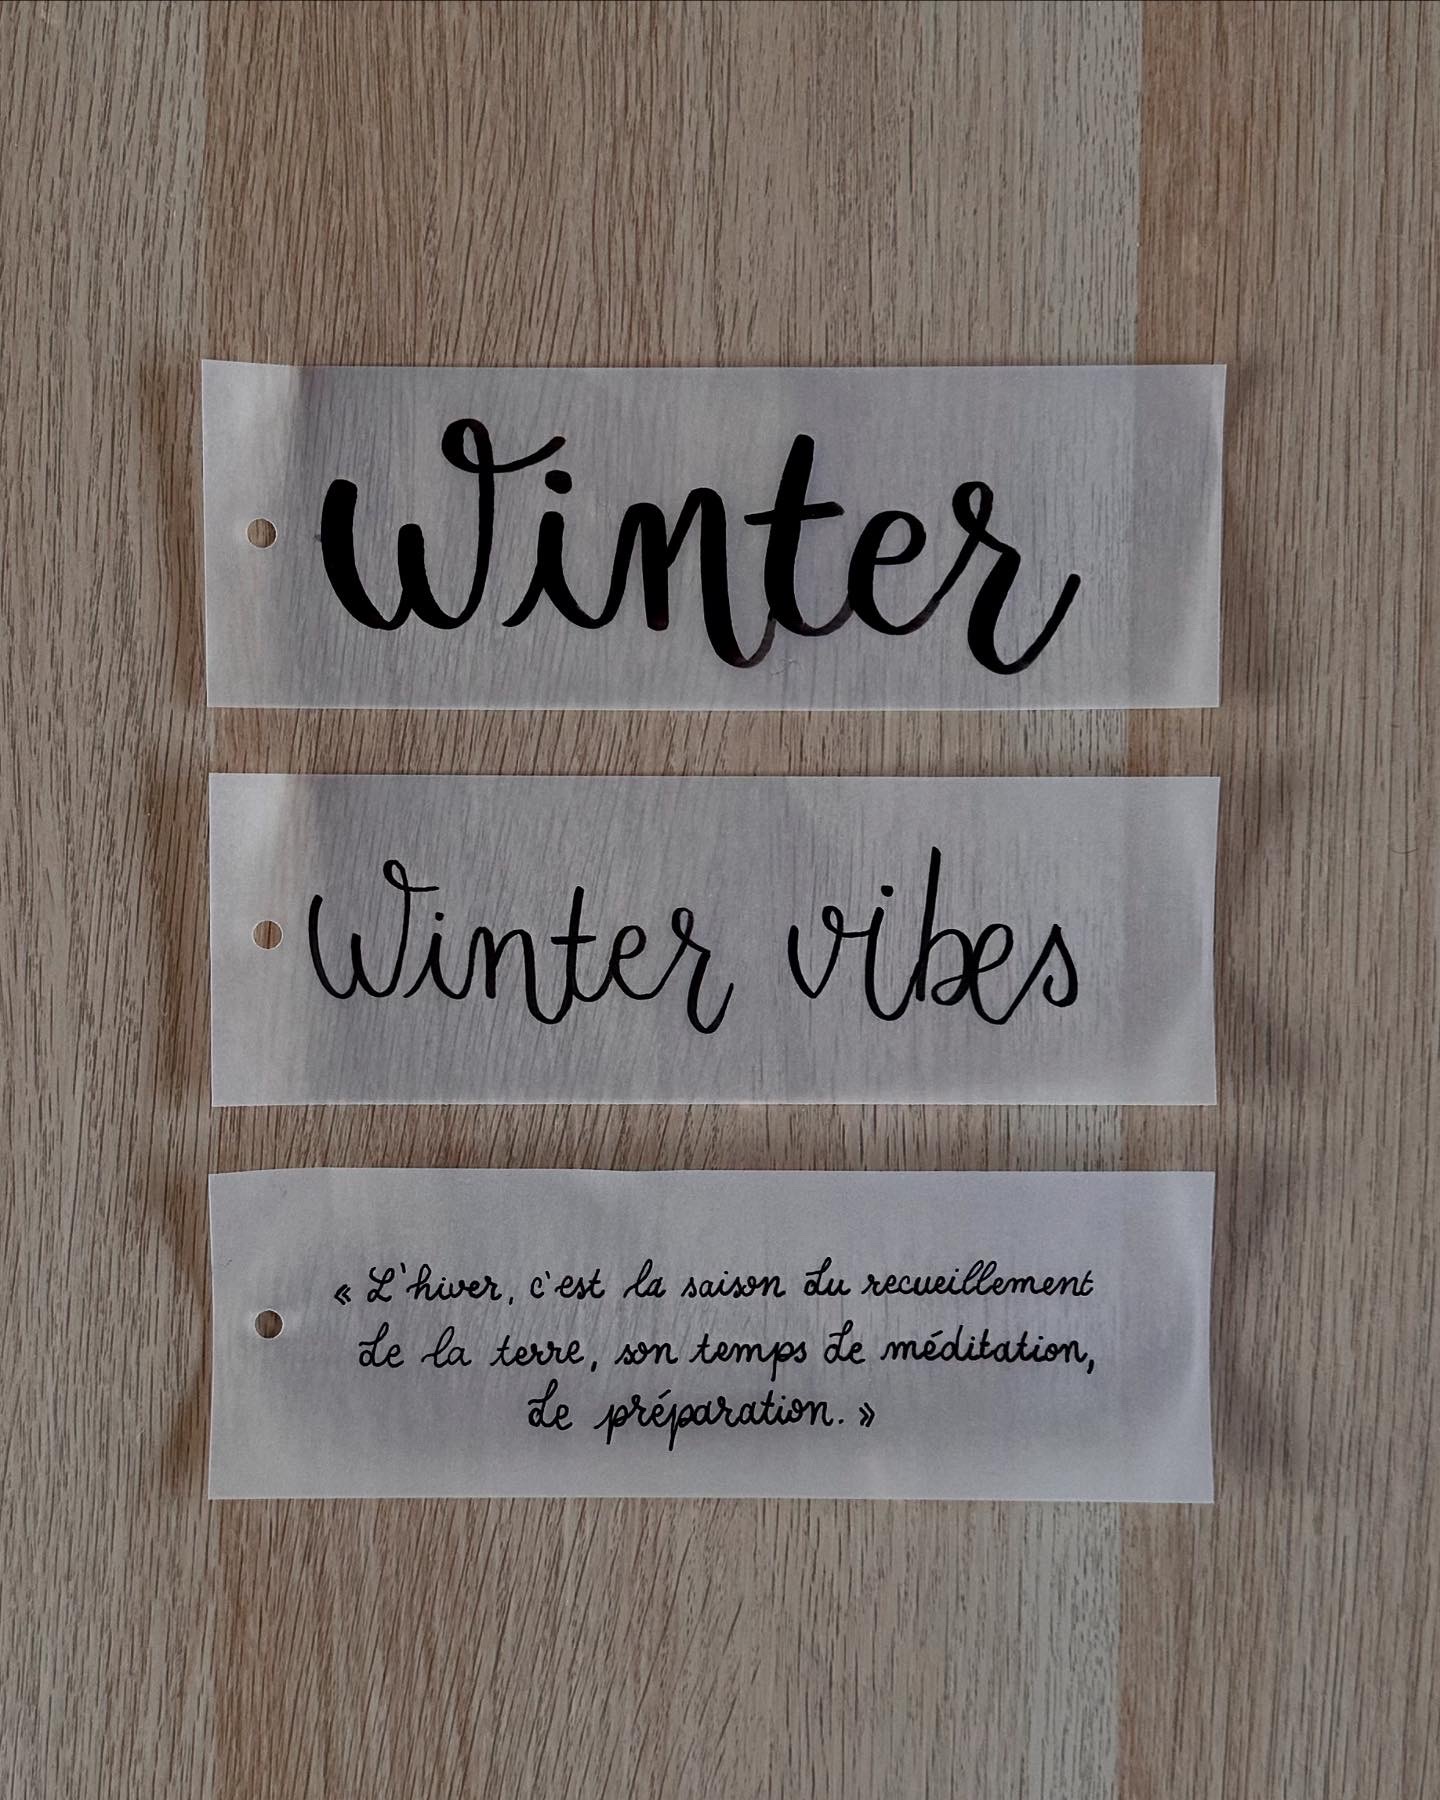 Winter
Winter vibes
« L'hiver, c'est la saison du recueillement
de la terre, son temps de méditation,
de préparation. »